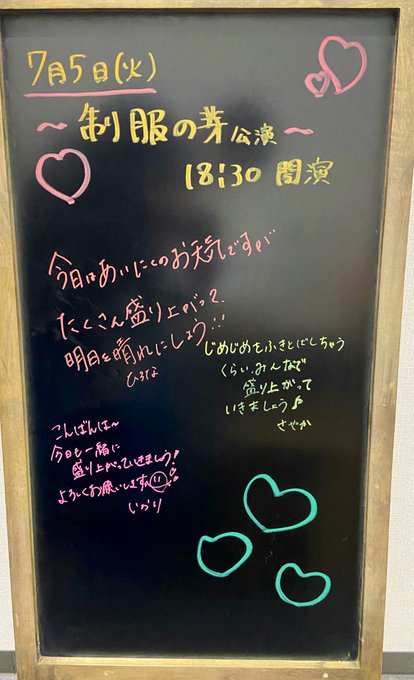 7月5日(火)
～制服の芽公演～
18:30 開演
今日はあいにくのお天気ですが
たくさん盛り上がって
明日を晴れにしよう!!
ひろな
じめじめをふきとばしちゃう
くらい、みんなで
盛り上がって
いきましょう♪
さやか
こんばんは〜
今日も一緒に
盛り上がっていきましょう!
よろしくお願いします
いおり